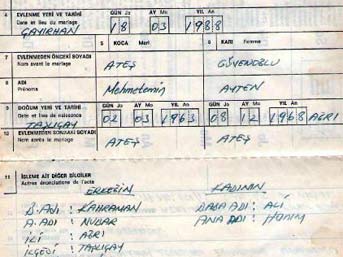 4 EVLENME YERİ VE TARİHİ GÜN Jo AY Mo YIL An
Date et lieu du mariage
ÇAYIRHAN 18 03 1988
5 KOCA Mari 6 KARI Femme
7 EVLENMEDEN ÖNCEKİ SOYADI
Nom avant le mariage
ATEŞ GÜVENOĞLU
8 ADI
Prénoms
Mehmetemin AYTEN
9 DOĞUM YERİ VE TARİHİ GÜN Jo AY Mo YIL An GÜN Jo AY Mo YIL An
Date et lieu de naissance
TAŞLIÇAY 02 03 1963 08 12 1968 AĞRI
10 EVLENMEDEN SONRAKİ SOYADI
Nom après le mariage
ATEŞ ATEŞ
11 İŞLEME AİT DİĞER BİLGİLER
Autres énonciations de l'acte
ERKEĞİN KADININ
B.ADI : KAHRAMAN BABA ADI : ALİ
A.ADI : ANA ADI : HANIM
İLİ : AĞRI
İLÇESİ : TAŞLIÇAY